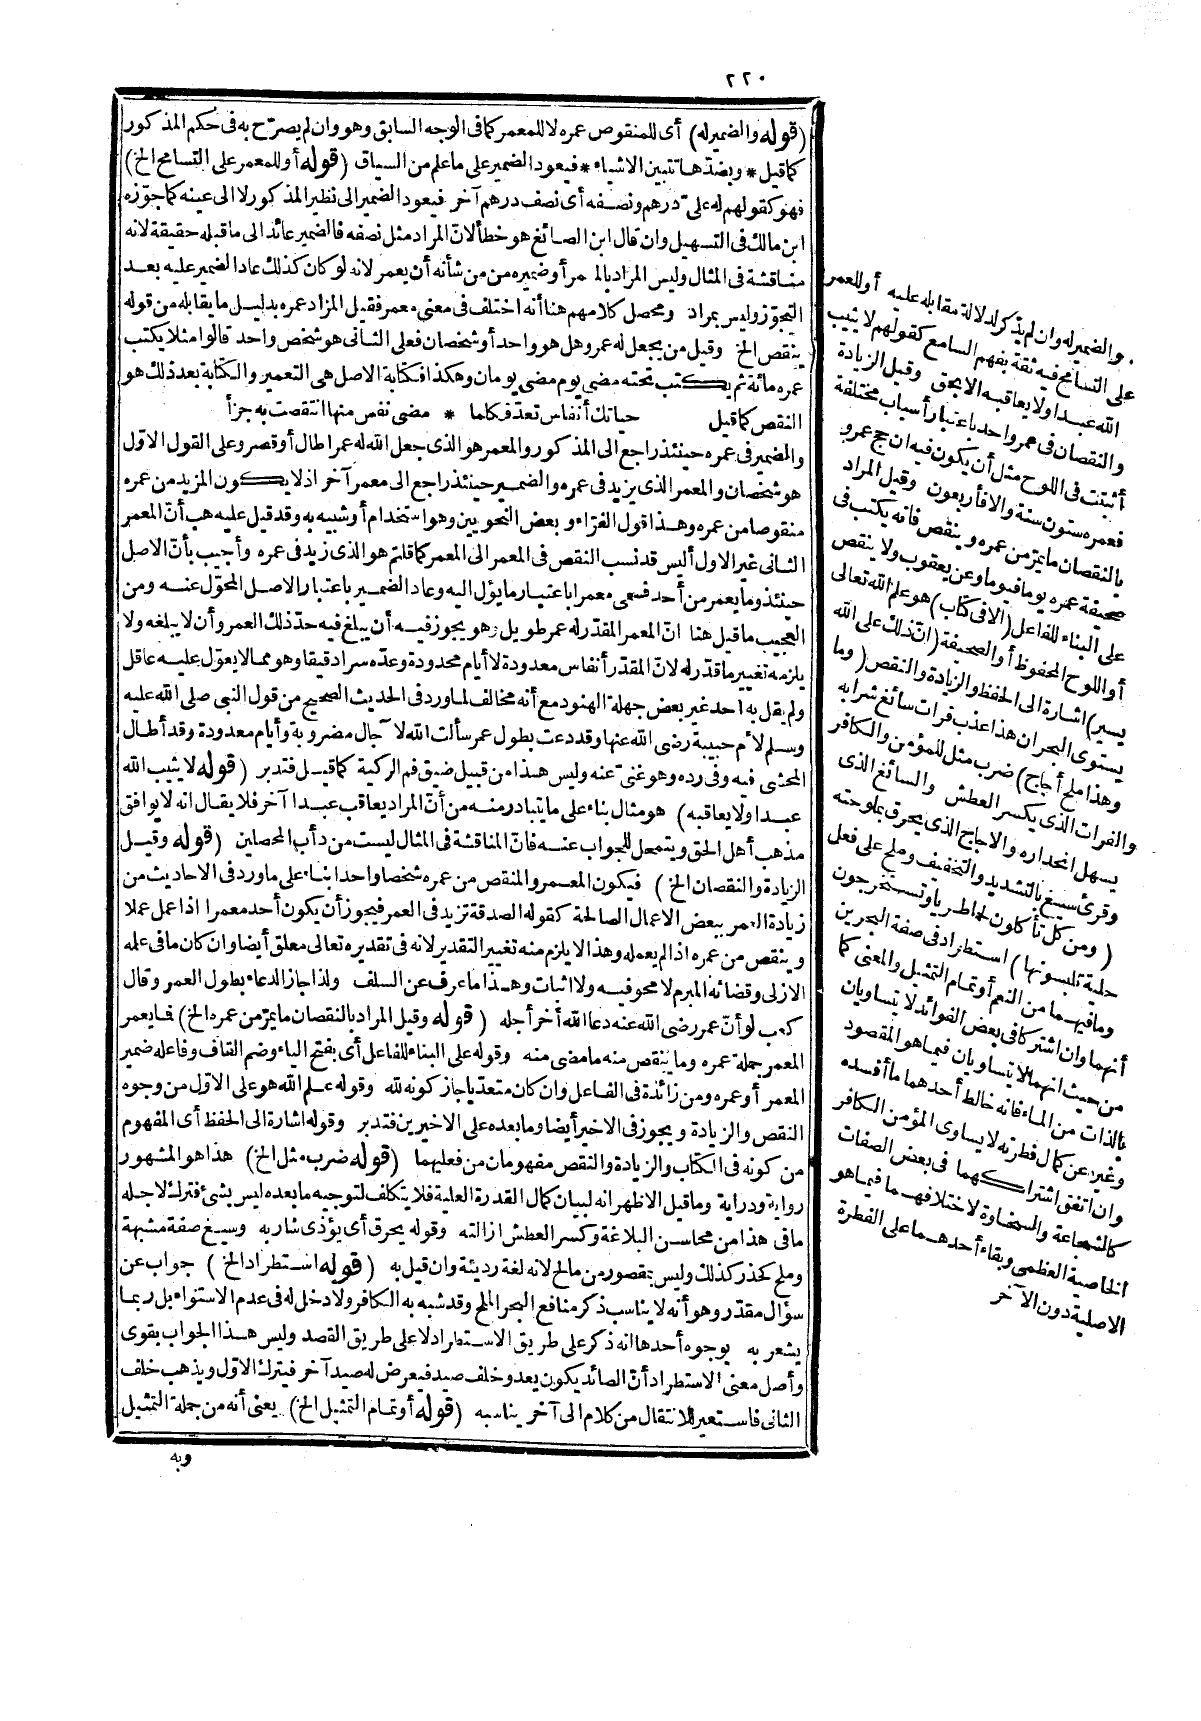 ٢٢٠
(قوله والضمير له) أى للمنقوص عمره لا للمعمر كما فى الوجه السابق وهو وان لم يصرّح به فى حكم المذكور
كما قيل * وبضدّها تتبين الاشياء * فيعود الضمير على ما علم من السياق (قوله أو للمعمر على التسامح الخ)
فهو كقولهم له علىّ درهم ونصفه أى نصف درهم آخر فيعود الضمير الى نظير المذكور لا الى عينه كما جوّزه
ابن مالك فى التسهيل وان قال ابن الصائغ هو خطأ لانّ المراد مثل نصفه فالضمير عائد الى ما قبله حقيقة لانه
مناقشة فى المثال وليس المراد بالمعمر أو ضميره من من شأنه أن يعمر لانه لو كان كذلك عاد الضمير عليه بعد
التجوّز وليس بمراد ومحصل كلامهم هنا أنه اختلف فى معنى معمر فقيل المزاد عمره بدليل ما يقابله من قوله
ينقص الخ وقيل من يجعل له عمر وهل هو واحد أو شخصان فعلى الثانى هو شخص واحد قالوا مثلا يكتب
عمره مائة ثم يكتب تحته مضى يوم مضى يومان وهكذا فكتابة الاصل هى التعمير والكتابة بعد ذلك هو
النقص كما قيل حياتك أنفاس تعدّ فكلما * مضى نفس منها انتقصت به جزأ
والضمير فى عمره حينئذ راجع الى المذكور والمعمر هو الذى جعل الله له عمرا طال أو قصر وعلى القول الاوّل
هو شخصان والمعمر الذى يزيد فى عمره والضمير حينئذ راجع الى معمر آخر اذ لا يكون المزيد من عمره
منقوصا من عمره وهذا قول الفرّاء وبعض النحويين وهو استخدام أو شبيه به وقد قيل عليه هب أنّ المعمر
الثانى غير الاول أليس قد نسب النقص فى المعمر الى المعمر كما قلتم هو الذى زيد فى عمره وأجيب بأنّ الاصل
حينئذ وما يعمر من أحد فسمى معمرا باعتبار ما يؤل اليه وعاد الضمير باعتبار الاصل المحوّل عنه ومن
العجيب ما قيل هنا انّ المعمر المقدّر له عمر طويل وهو يجوز فيه أن يبلغ فيه حدّ ذلك العمر وأن لا يبلغه ولا
يلزمه تغيير ما قدّر له لانّ المقدّر أنفاس معدودة لا أيام محدودة وعدّه سرا دقيقا وهو مما لا يعوّل عليه عاقل
ولم يقل به أحد غير بعض جهلة الهنود مع أنه مخالف لما ورد فى الحديث الصحيح من قول النبى صلى الله عليه
وسلم لام حبيبة رضى الله عنها وقد دعت بطول عمر سألت الله لآجال مضروبة وأيام معدودة وقد أطال
المحشى فيه وفى رده وهو غنىّ عنه وليس هذا من قبيل ضيق فم الركية كما قيل فتدبر (قوله لا يثيب الله
عبدا ولا يعاقبه) هو مثال بناء على ما يتبادر منه من أنّ المراد يعاقب عبدا آخر فلا يقال انه لا يوافق
مذهب أهل الحق ويتمحل للجواب عنه فانّ المناقشة فى المثال ليست من دأب المحصلين (قوله وقيل
الزيادة والنقصان الخ) فيكون المعمر والمنقص من عمره شخصا واحدا بناء على ما ورد فى الاحاديث من
زيادة العمر ببعض الاعمال الصالحة كقوله الصدقة تزيد فى العمر فيجوز أن يكون أحد معمرا اذا عمل عملا
وينقص من عمره اذا لم يعمله وهذا لا يلزم منه تغيير التقدير لانه فى تقديره تعالى معلق أيضا وان كان ما فى علمه
الازلى وقضائه المبرم لا محو فيه ولا اثبات وهذا ما عرف عن السلف ولذا جاز الدعاء بطول العمر وقال
كعب لو أنّ عمر رضى الله عنه دعا الله أخر أجله (قوله وقيل المراد بالنقصان ما يمرّ من عمره الخ) فما يعمر
المعمر جملة عمره وما ينقص منه ما مضى منه وقوله على البناء للفاعل أى بفتح الياء وضم القاف وفاعله ضمير
المعمر أو عمره ومن زائدة فى الفاعل وان كان متعدّيا جاز كونه لله وقوله علم الله هو على الاوّل من وجوه
النقص والزيادة ويجوز فى الاخير أيضا وما بعده على الاخيرين فتدبر وقوله اشارة الى الحفظ أى المفهوم
من كونه فى الكتاب والزيادة والنقص مفهومان من فعليهما (قوله ضرب مثل الخ) هذا هو المشهور
رواية ودراية وما قيل الاظهر انه لبيان كمال القدرة العلية فلا يتكلف لتوجيه ما بعده ليس بشئ فترك لاجله
ما فى هذا من محاسن البلاغة وكسر العطش ازالته وقوله يحرق أى يؤذى شاربه وسيغ صفة مشبهة
وملح كحذر كذلك وليس بمقصور من مالح لانه لغة رديئة وان قيل به (قوله استطراد الخ) جواب عن
سؤال مقدّر وهو أنه لا يناسب ذكر منافع البحر الملح وقد شبه به الكافر ولا دخل له فى عدم الاستواء بل ربما
يشعر به بوجوه أحدها انه ذكر على طريق الاستطراد لا على طريق القصد وليس هذا الجواب بقوى
وأصل معنى الاستطراد أنّ الصائد يكون يعدو خلف صيد فيعرض له صيد آخر فيترك الاول ويذهب خلف
الثانى فاستعير للانتقال من كلام الى آخر يناسبه (قوله أو تمام التمثيل الخ) يعنى أنه من جملة التمثيل
وبه
والضمير له وان لم يذكر لدلالة مقابله عليه أو للمعمر
على التسامح فيه ثقة بفهم السامع كقولهم لا يثيب
الله عبدا ولا يعاقبه الا بحق وقيل الزيادة
والنقصان فى عمر واحد باعتبار أسباب مختلفة
أثبتت فى اللوح مثل أن يكون فيه ان حج عمرو
فعمره ستون سنة والا فأربعون وقيل المراد
بالنقصان ما يمرّ من عمره وينقص فانه يكتب فى
صحيفة عمره يوما فيوما وعن يعقوب ولا ينقص
على البناء للفاعل (الا فى كتاب) هو علم الله تعالى
أو اللوح المحفوظ أو الصحيفة (انّ ذلك على الله
يسير) اشارة الى الحفظ والزيادة والنقص (وما
يستوى البحران هذا عذب فرات سائغ شرابه
وهذا ملح أجاج) ضرب مثل للمؤمن والكافر
والفرات الذى يكسر العطش والسائغ الذى
يسهل انحداره والاجاج الذى يحرق بملوحته
وقرئ سيغ بالتشديد والتخفيف وملح على فعل
(ومن كل تأكلون لحما طريا وتستخرجون
حلية تلبسونها) استطراد فى صفة البحرين
وما فيهما من النعم أو تمام التمثيل والمعنى كما
أنهما وان اشتركا فى بعض الفوائد لا يتساويان
من حيث انهما لا يتساويان فيما هو المقصود
بالذات من الماء فانه خالط أحدهما ما أفسده
وغيره عن كمال فطرته لا يساوى المؤمن الكافر
وان اتفق اشتراكهما فى بعض الصفات
كالشجاعة والسخاوة لاختلافهما فيما هو
الخاصية العظمى وبقاء أحدهما على الفطرة
الاصلية دون الآخر